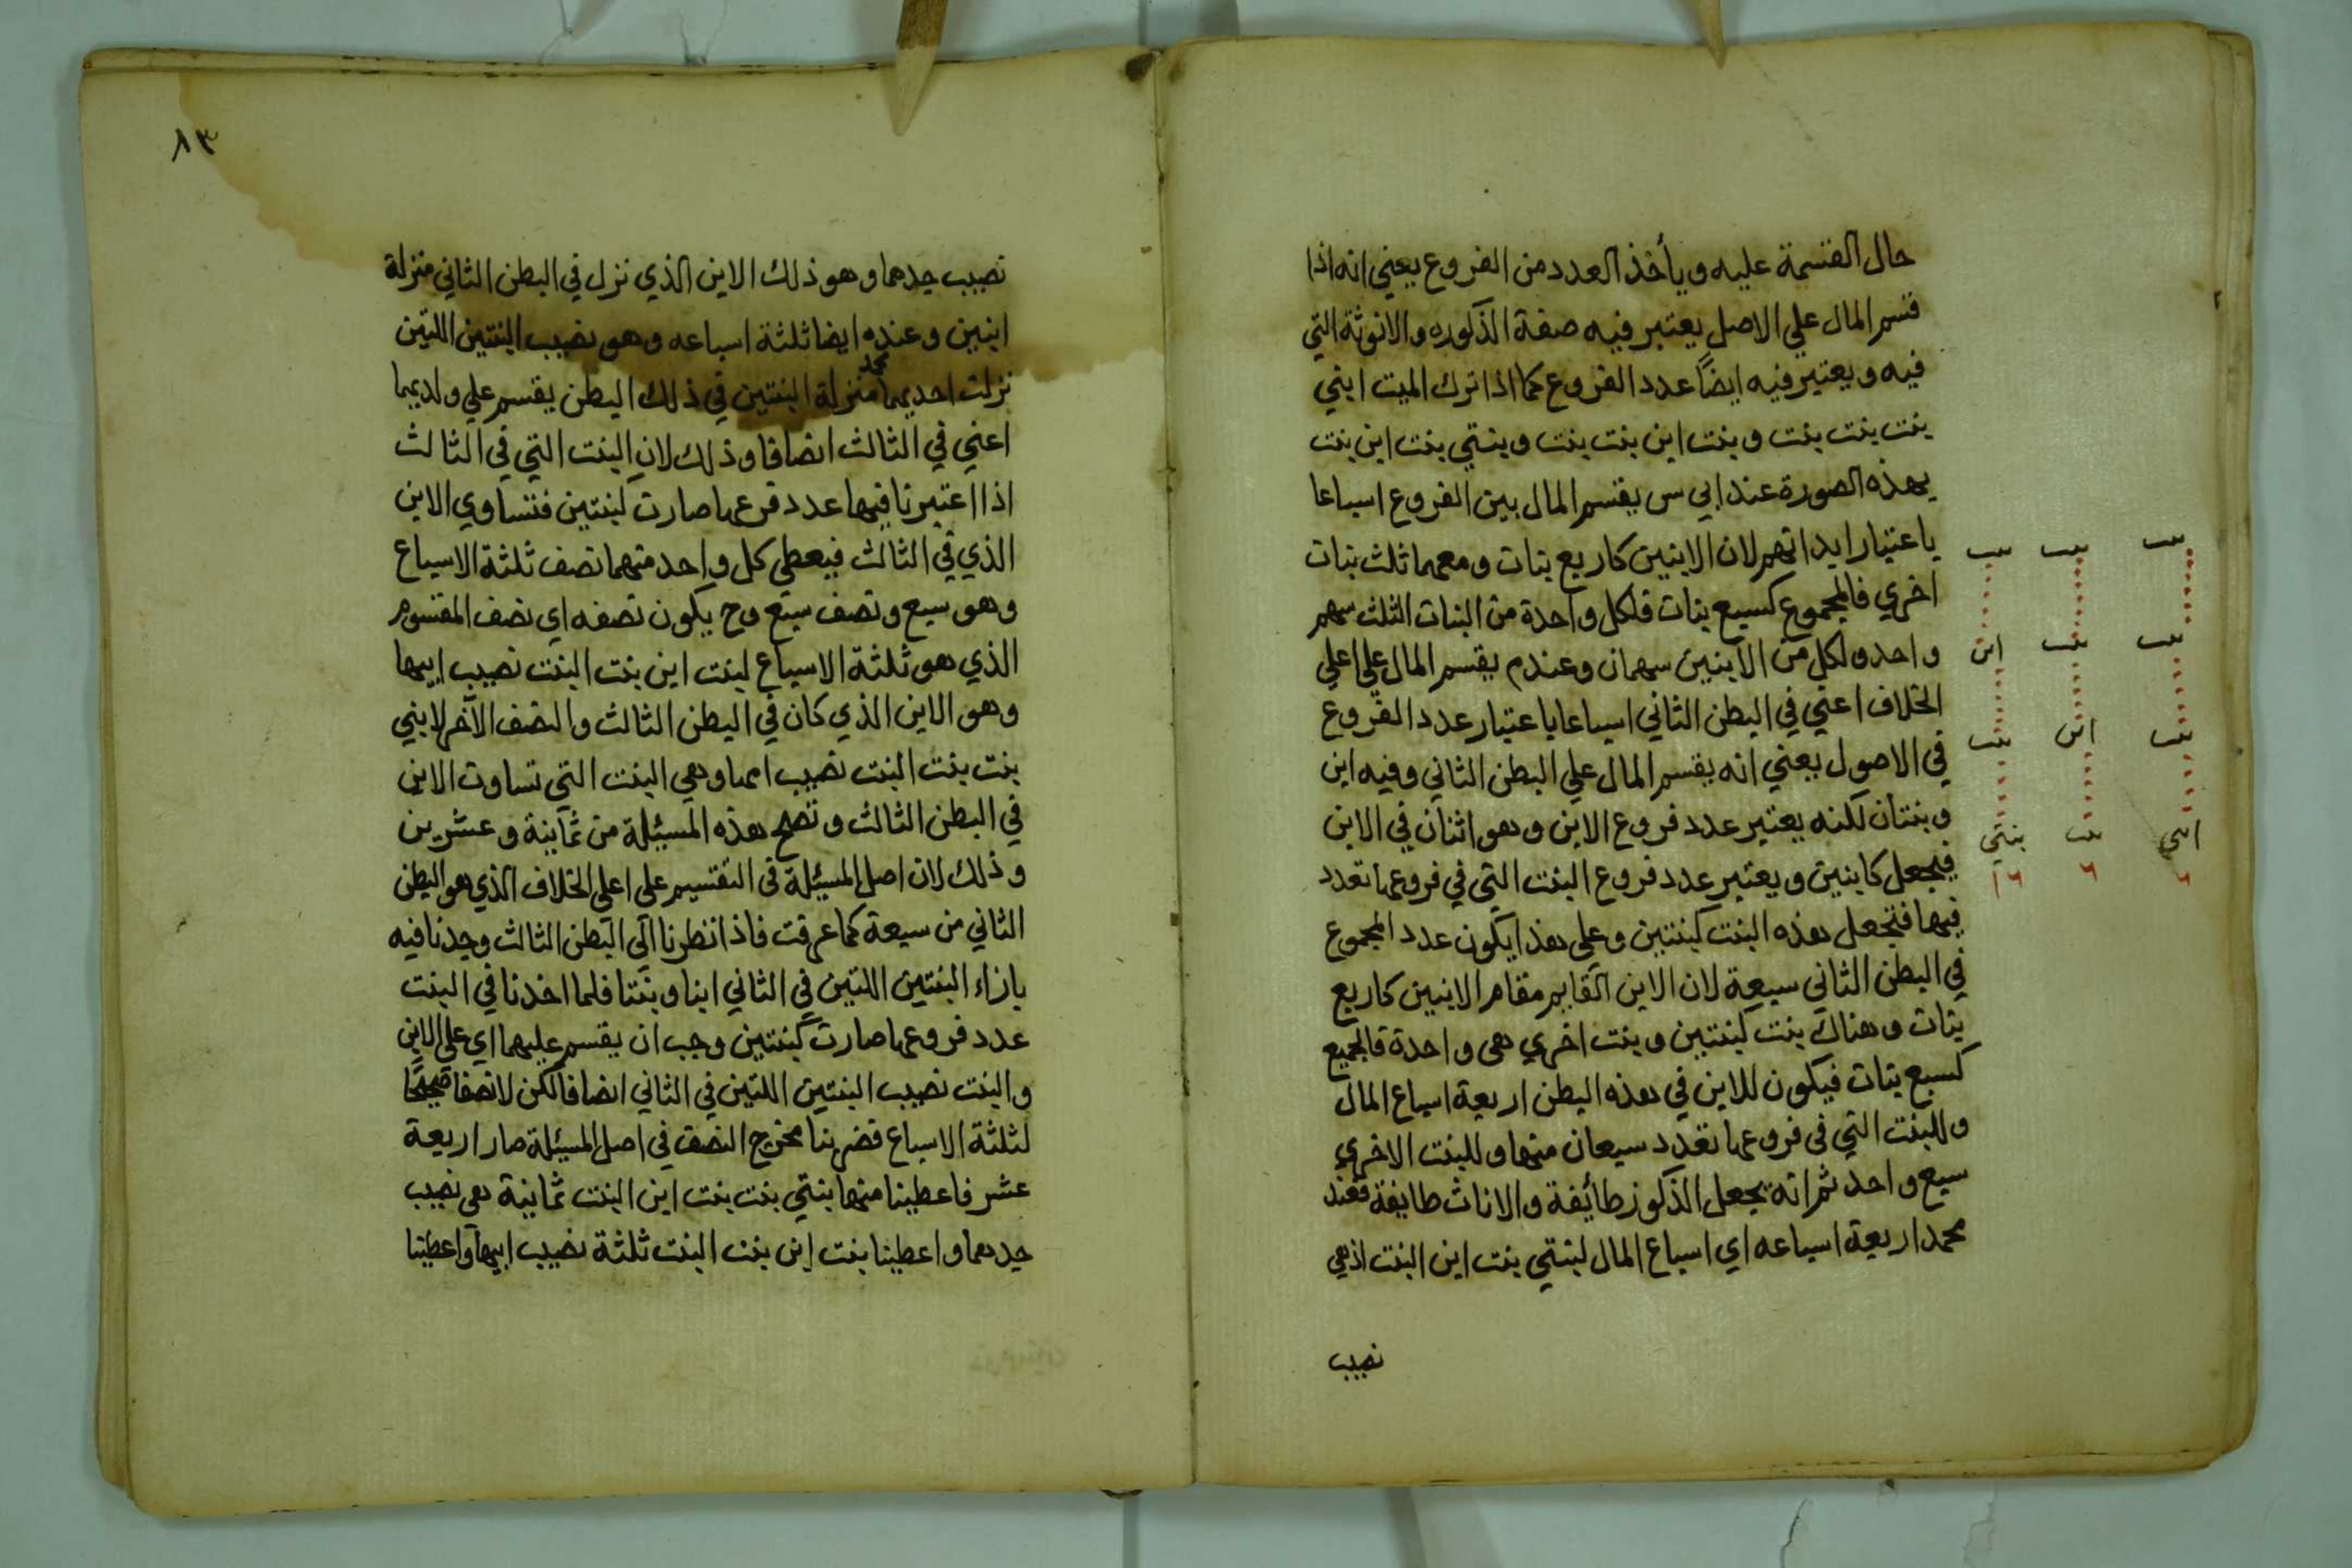 حال القسمة عليه ويأخذ العدد من الفروع يعني انه اذا
قسم المال علي الاصل يعتبر فيه صفة الذكوره والانوثة التي
فيه ويعتبر فيه ايضاً عدد الفروع كما اذا ترك الميت ابني
بنت بنت بنت وبنت ابن بنت بنت وبنتي بنت ابن بنت
بهذه الصورة عند ابي س يقسم المال بين الفروع اسباعا
باعتبار ابدانهم لان الابنين كاربع بنات ومعهما ثلث بنات
اخري فالمجموع كسبع بنات فلكل واحدة من البنات الثلث سهم
واحد ولكل من الابنين سهمان وعندم يقسم المال علي اعلي
الخلاف اعني في البطن الثاني اسباعا باعتبار عدد الفروع
في الاصول يعني انه يقسم المال علي البطن الثاني وفيه ابن
وبنتان لكنه يعتبر عدد فروع الابن وهو اثنان في الابن
فيجعل كابنين ويعتبر عدد فروع البنت التي في فروعها تعدد
فيها فتجعل هذه البنت كبنتين وعلي هذا يكون عدد المجموع
في البطن الثاني سبعة لان الابن القايم مقام الابنين كاربع
بنات وهناك بنت كبنتين وبنت اخري هى واحدة فالجميع
كسبع بنات فيكون للابن في هذه البطن اربعة اسباع المال
وللبنت التي في فروعها تعدد سبعان منها وللبنت الاخري
سبع واحد ثم انه يجعل الذكور طائفة والاناث طايفة فعند
محمد اربعة اسباعه اي اسباع المال لبنتي بنت ابن البنت اذ هي
نصيب
بنت بنت بنت
بنت بنت ابن
بنت ابن بنت
ابني بنت بنتي
٦ ٦ ١٦
٨٣
نصيب جدهما وهو ذلك الابن الذي نزل في البطن الثاني منزلة
ابنين وعنده ايضا ثلثة اسباعه وهو نصيب البنتين اللتين
نزلت احديهما منزلة البنتين في ذلك البطن يقسم علي ولديهما
محمد
اعني في الثالث انصافا وذلك لان البنت التي في الثالث
اذا اعتبرنا فيها عدد فرعها صارت كبنتين فتساوي الابن
الذي في الثالث فيعطي كل واحد منهما نصف ثلثة الاسباع
وهو سبع ونصف سبع وح يكون نصفه اي نصف المقسوم
الذي هو ثلثة الاسباع لبنت ابن بنت البنت نصيب ابيها
وهو الابن الذي كان في البطن الثالث والنصف الآخر لابني
بنت بنت البنت نصيب امها وهي البنت التي تساوت الابن
في البطن الثالث وتصح هذه المسئلة من ثمانية وعشرين
وذلك لان اصل المسئلة في التقسيم على اعلي الخلاف الذي هو البطن
الثاني من سبعة كما عرفت فاذا نظرنا الي البطن الثالث وجدنا فيه
بازاء البنتين اللتين في الثاني ابنا وبنتا فلما اخذنا في البنت
عدد فروعها صارت كبنتين وجب ان يقسم عليهما اي علي الابن
والبنت نصيب البنتين اللتين في الثاني انصافا لكن لا نصفا صحيحًا
لثلثة الاسباع فضربنا مخرج النصف في اصل المسئلة صار اربعة
عشر فاعطينا منها بنتي بنت بنت ابن البنت ثمانية هى نصيب
جدهما واعطينا بنت ابن بنت البنت ثلثة نصيب ابيها واعطينا